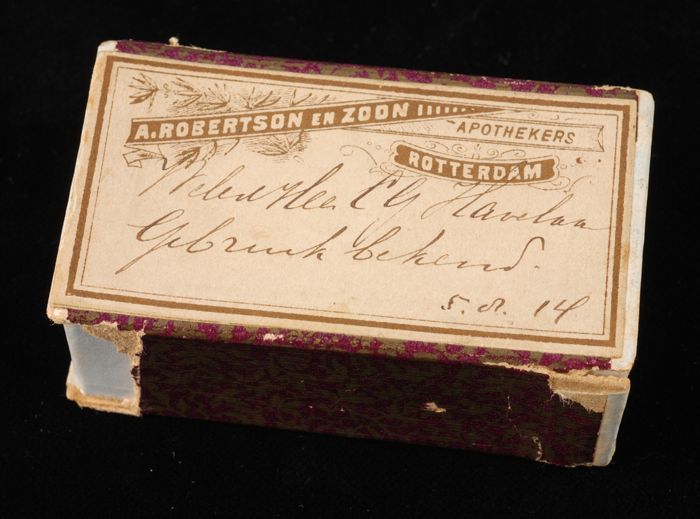 A. ROBERTSON EN ZOON
APOTHEKERS
ROTTERDAM
C G Havelaa
Gebruik bekend.
5. 8. 14